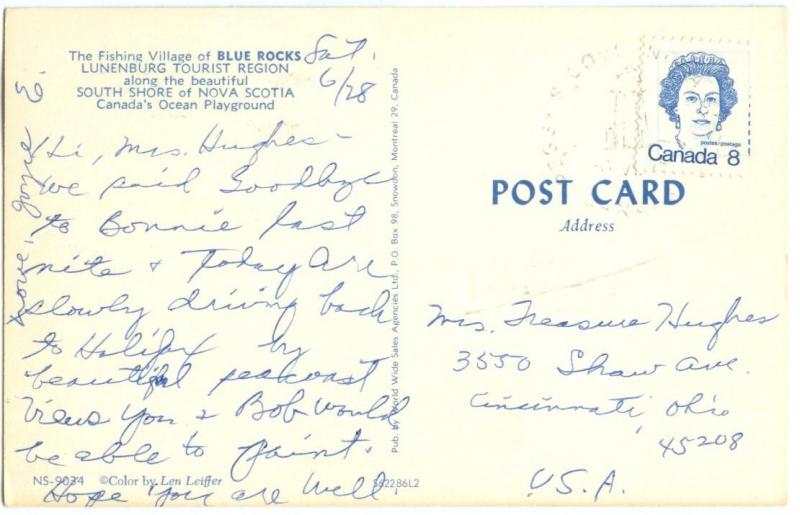 The Fishing Village of BLUE ROCKS
LUNENBURG TOURIST REGION
along the beautiful
SOUTH SHORE of NOVA SCOTIA
Canada's Ocean Playground
Sat.
6/28
Hi, Mrs. Hughes -
We said Goodbye
to Bonnie last
nite & Today Are
slowly driving back
to Halifax by
beautiful seacoast
Views You & Bob would
be able to paint.
Hope You are well.
Love,
E.
NS-9034 ©Color by Len Leiffer
S62286L2
Pub. by World Wide Sales Agencies Ltd., P.O. Box 98, Snowdon, Montreal 29, Canada
postes/postage
Canada 8
POST CARD
Address
Mrs. Treasure Hughes
3550 Shaw Ave.
Cincinnati, Ohio
45208
U.S.A.